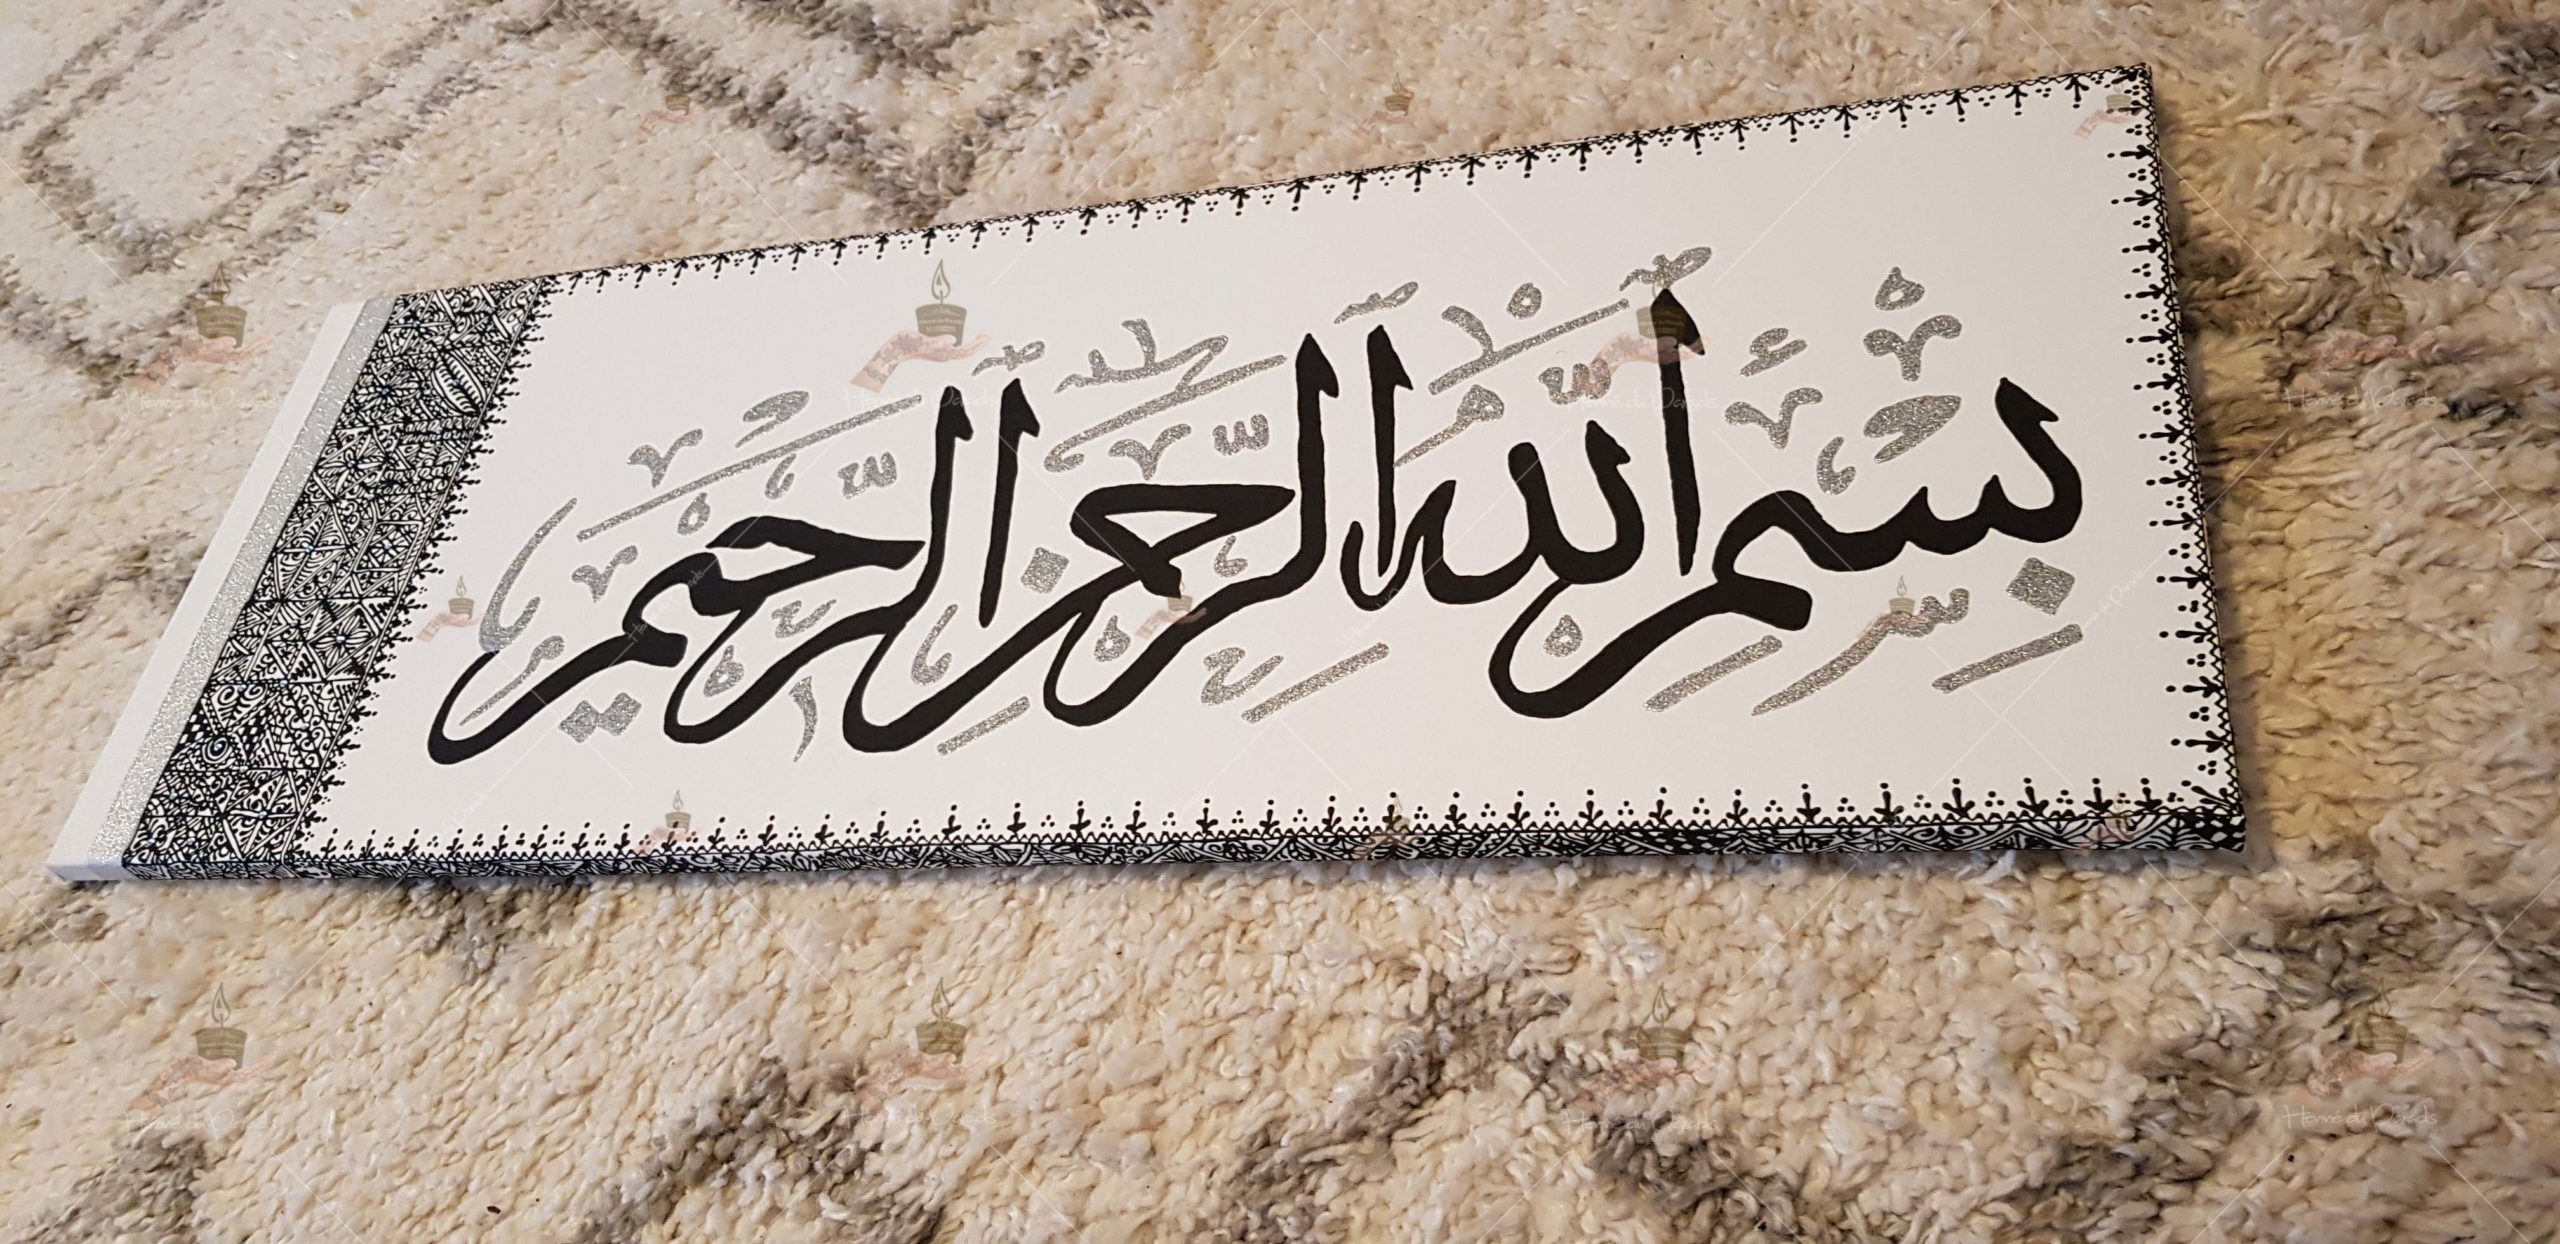 بِسْمِ اللَّهِ الرَّحْمَٰنِ الرَّحِيمِ
Henné du Paradis